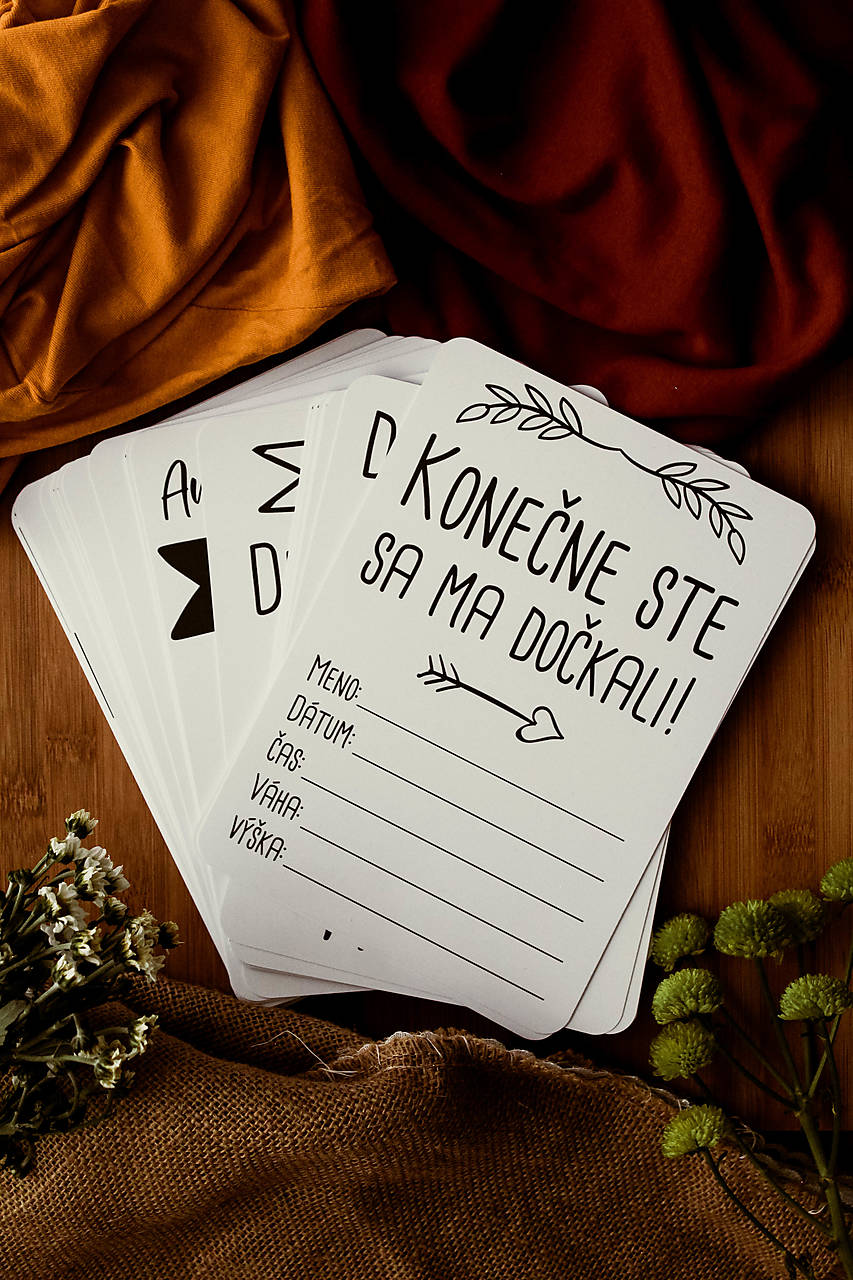 KONEČNE STE
SA MA DOČKALI!
MENO:
DÁTUM:
ČAS:
VÁHA:
VÝŠKA: